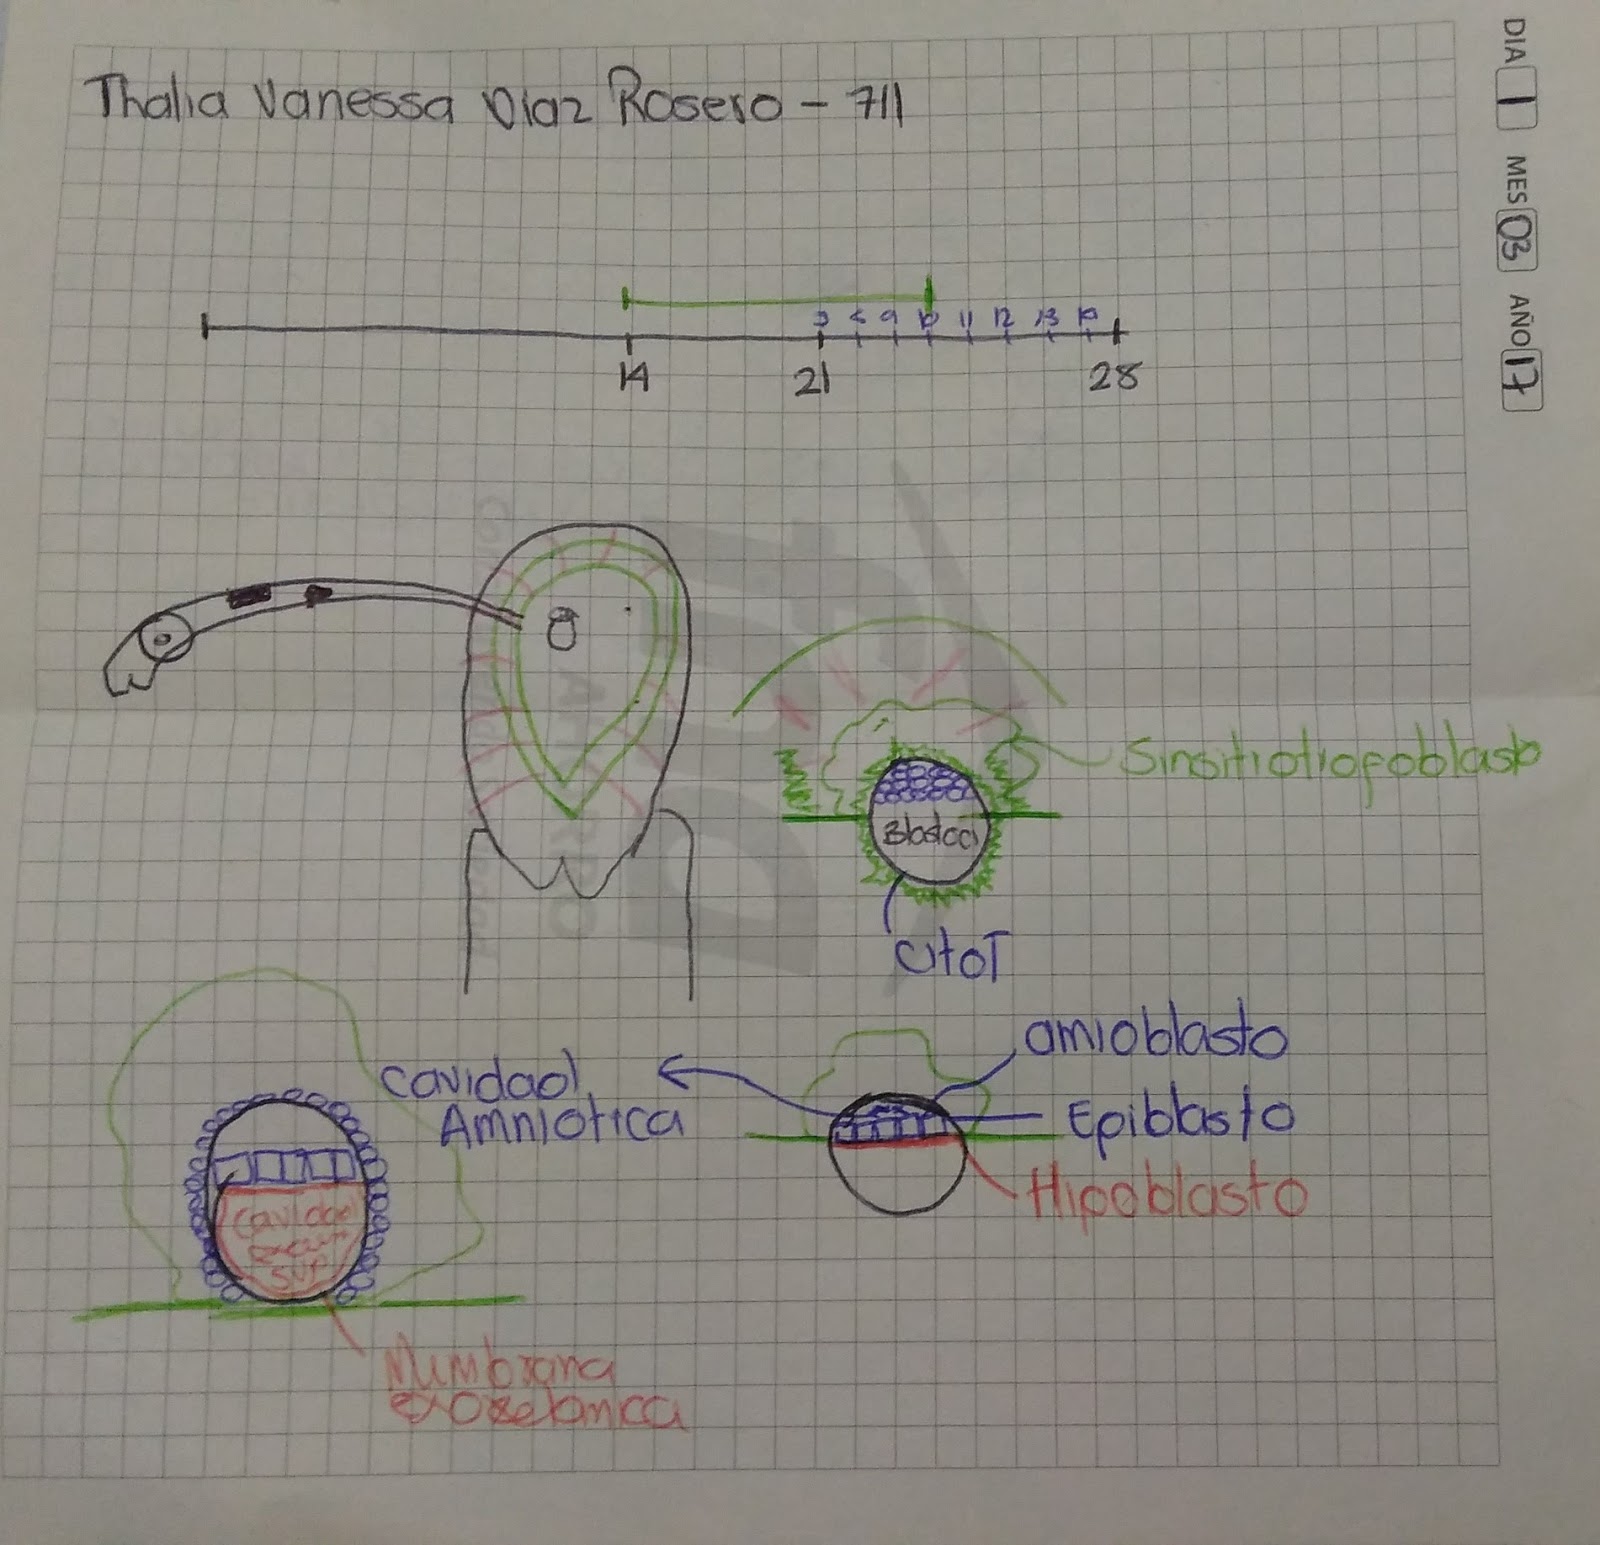 DIA 1 MES 03 AÑO 17
Thalia Vanessa Diaz Rosero - 711
9 10 11 12 13
14 21 28
Sinsitiotrofoblasto
Blastoci
CitoT
amioblasto
Cavidad
Amniotica
Epiblasto
Hipoblasto
Cavidad
Membrana
exocelomica